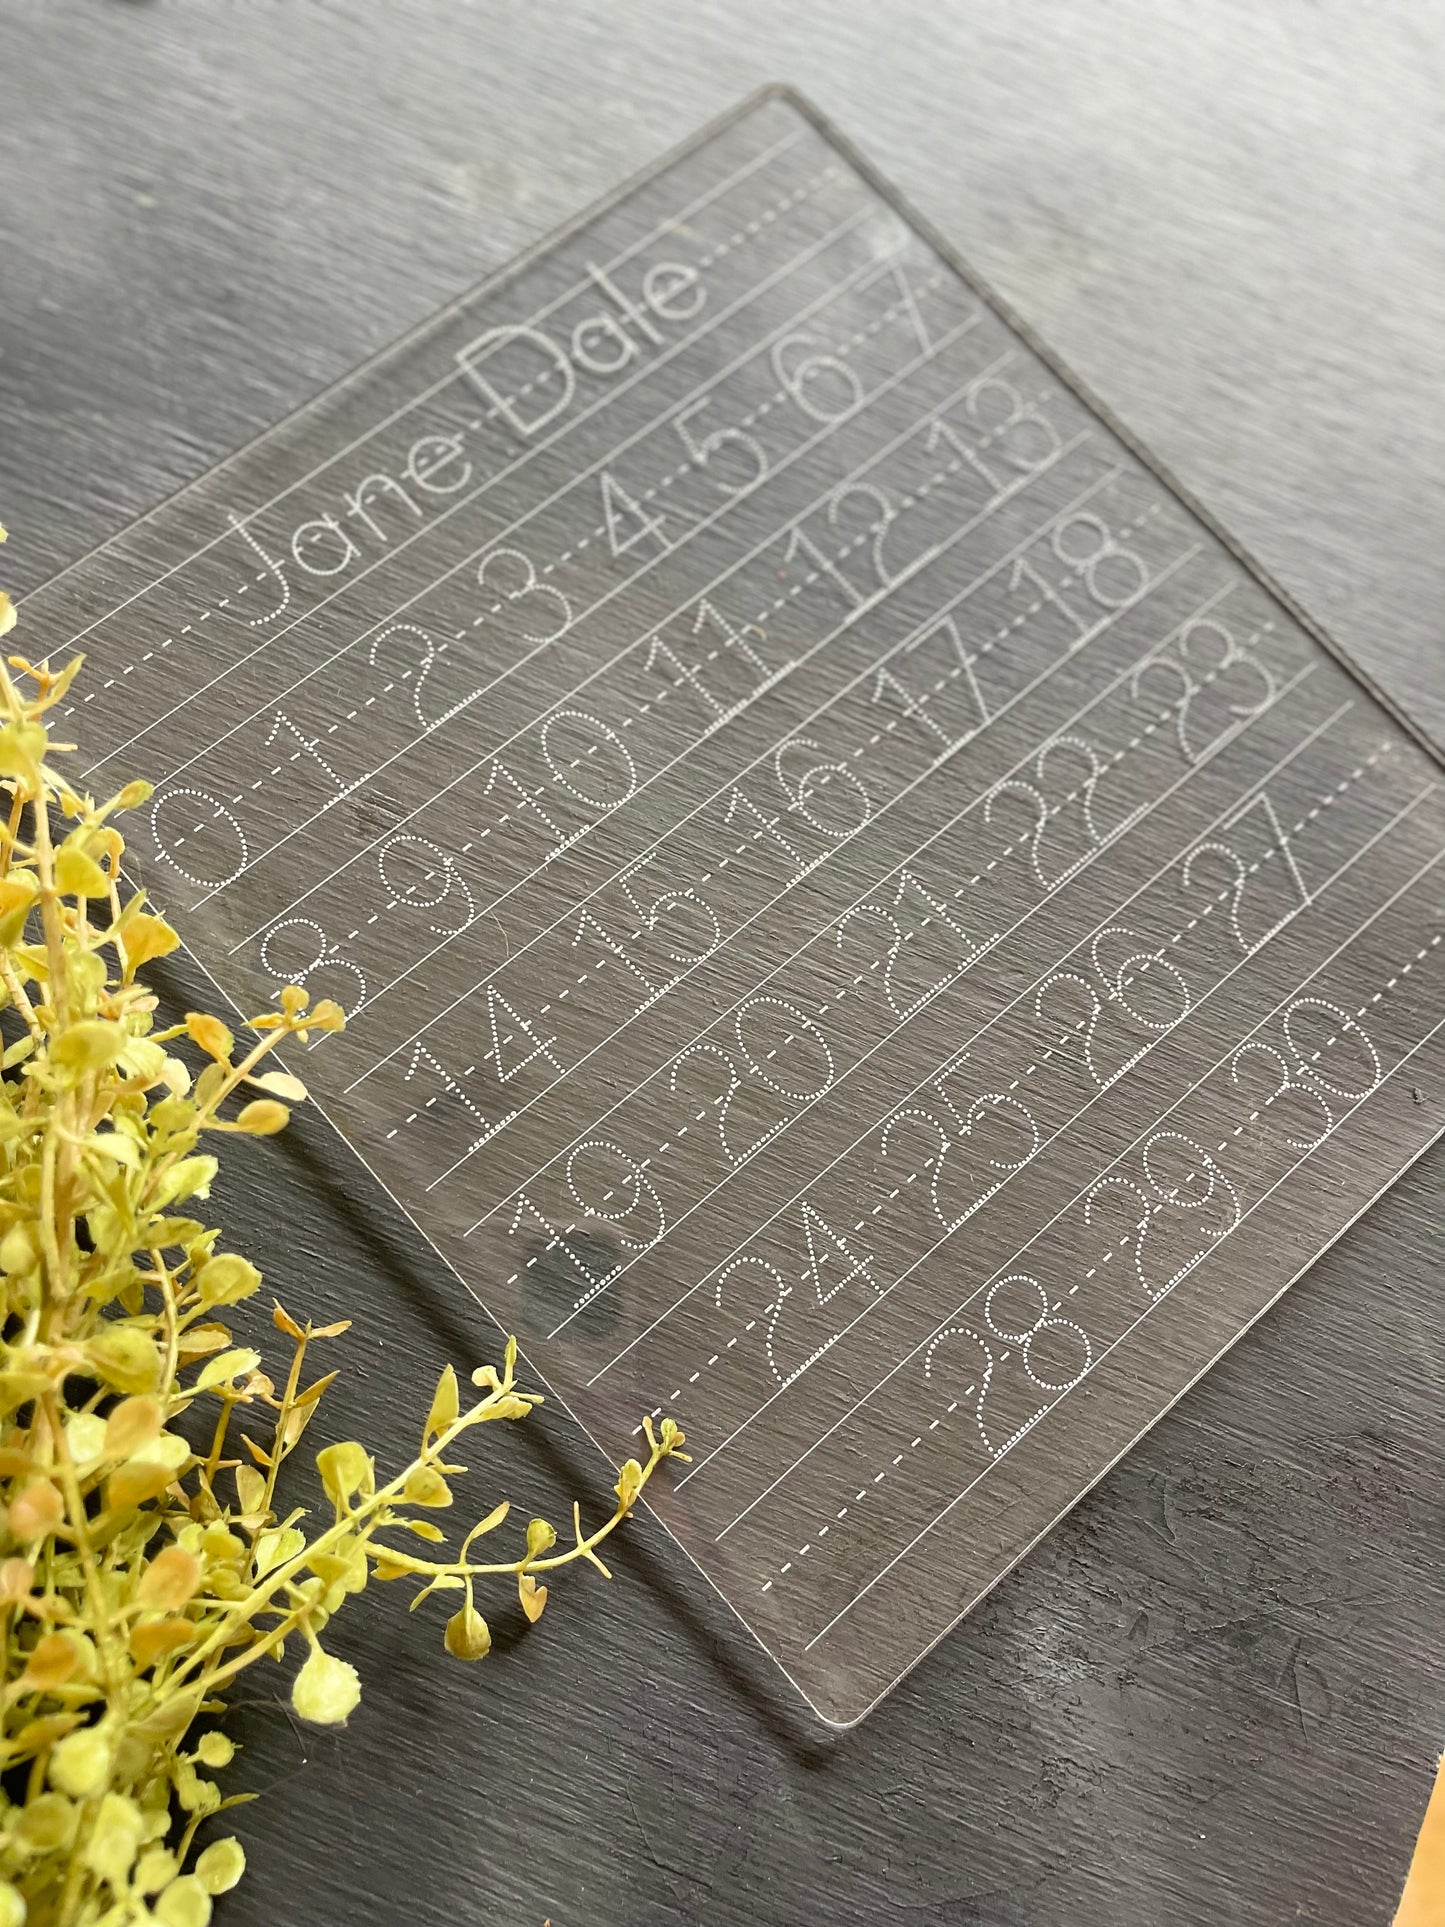 Jane Dale
0 1 2 3 4 5 6 7
8 9 10 11 12 13
14 15 16 17 18
19 20 21 22 23
24 25 26 27
28 29 30